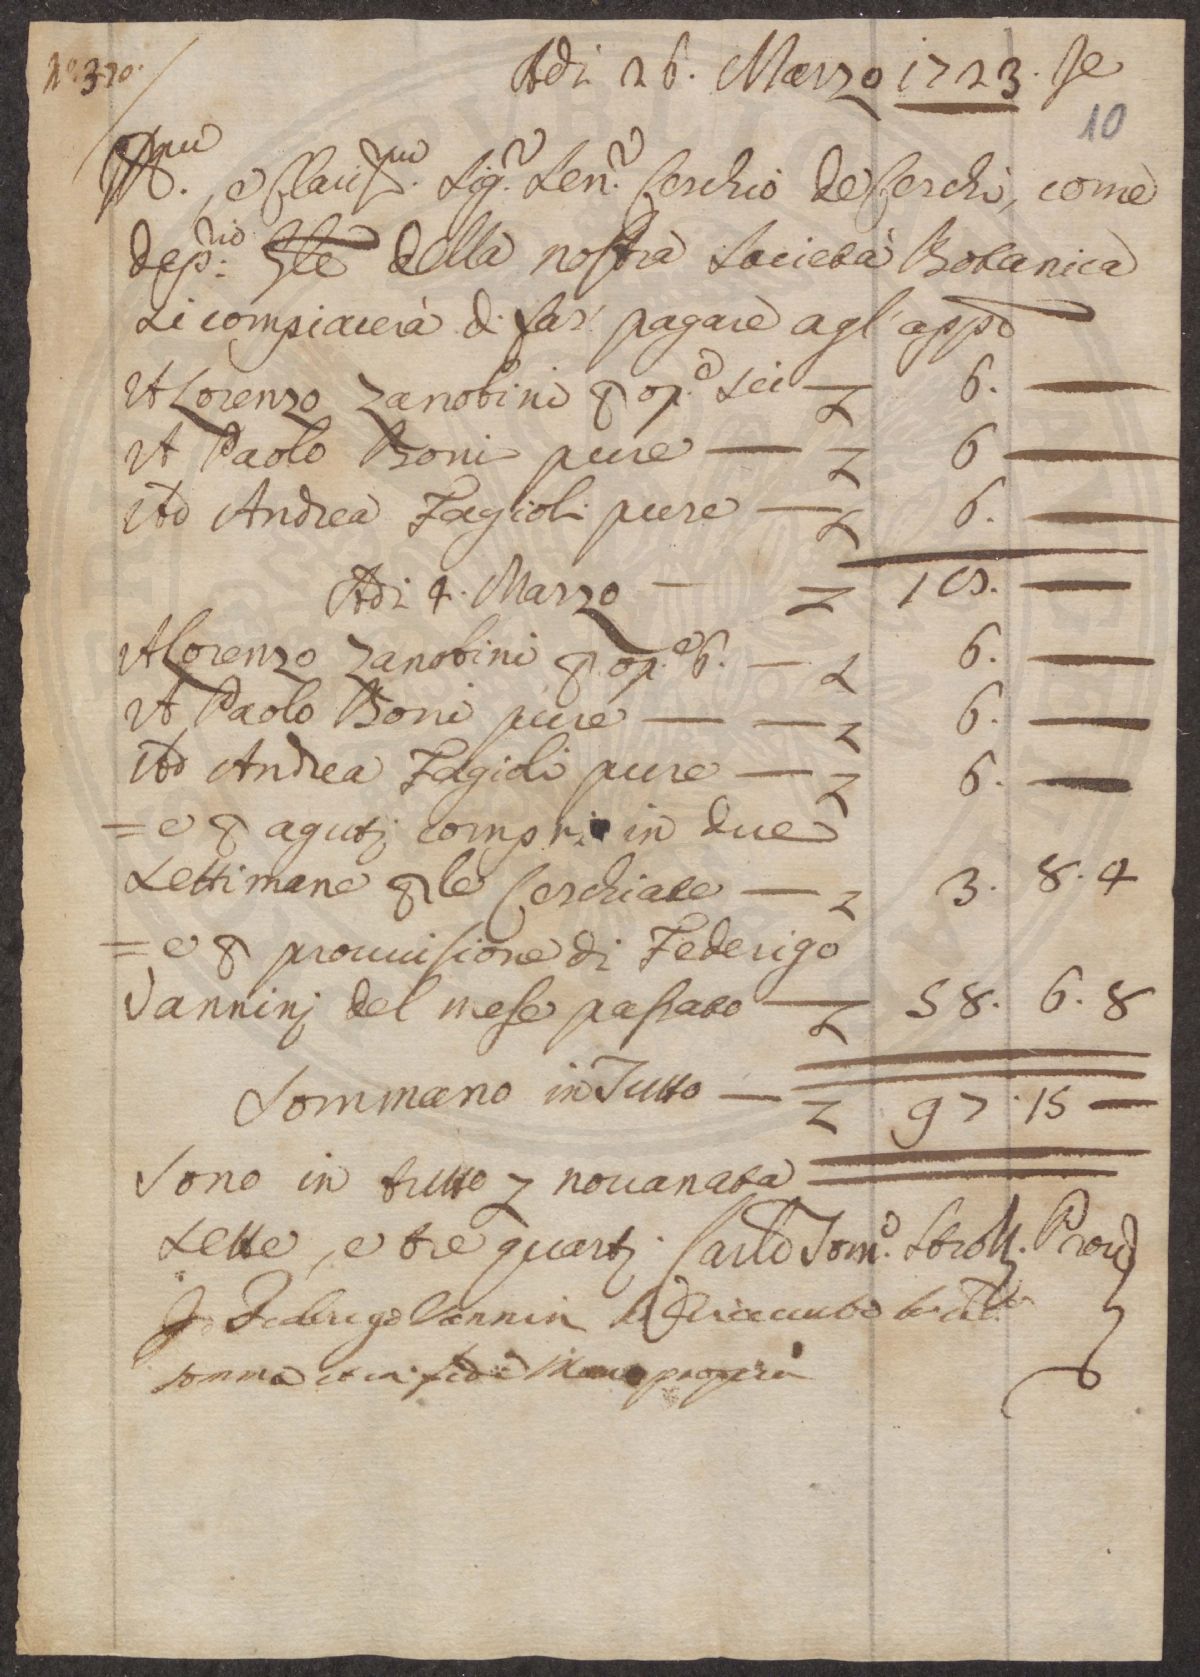 N.º 370.
Adi 26. Marzo 1723. Se
10
Ill.mo, e Clariss.mo Sig.r Sen.r Cerchio de Cerchi, come
dep.rio Gle della nostra Società Botanica
Si compiacerà di far pagare agl'app.o
A Lorenzo Zanobini p op.e Sei — L 6. —
A Paolo Boni pure — L 6 —
Ad Andrea Fagioli pure — L 6. —
Adi 4. Marzo — L 18. —
A Lorenzo Zanobini p op.e 6. — L 6. —
A Paolo Boni pure — — L 6. —
Ad Andrea Fagioli pure — L 6. —
= e p aguti compri in due
Settimane p le Cerchiate — L 3. 8. 4
= e p provvisione di Federigo
Vannini del mese passato — L 58. 6. 8
Sommano in Tutto — L 97. 15 —
Sono in tutto L novanata
Sette, e tre quarti Carlo Tom.o Strozzi Prov.
Io Federigo Vannini ò riceuuto la
somma et in fede mano propria